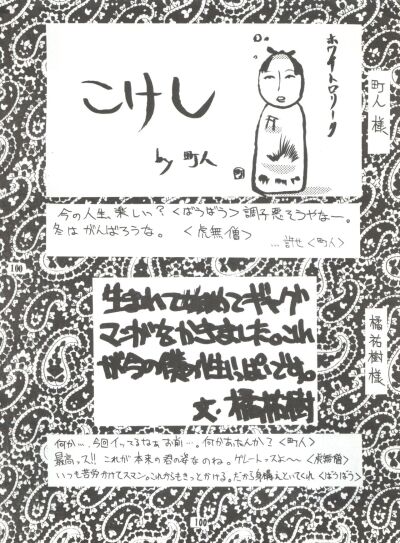 こけし
by 町人
ホワイトロリーク
町人 様
今の人生、楽しい？＜ばうばう＞調子悪そうやなー。
冬は がんばろうな。 ＜虎無僧＞
…許せ＜町人＞
100
生まれて始めてギャグ
マンガをかきました。これ
が今の僕の性いっぱいです。
文・橘祐樹
橘祐樹 様
何か…今回イッてるなぁお前…。何かあったんか？＜町人＞
最高ッス!! これが本来の君の姿なのね。グレートッスよ〜＜虎無僧＞
いつも苦労かけてスマン。これからもきっとかける。だから身構えといてくれ＜ばうばう＞
100